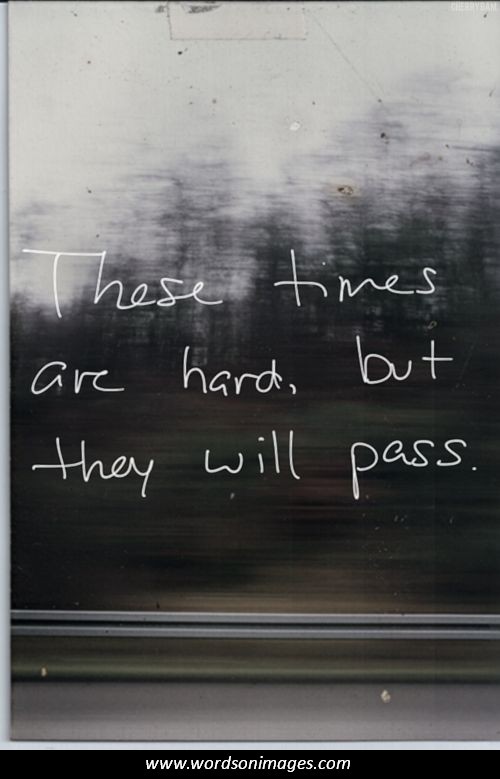 CHERRYBAM
These times
are hard, but
they will pass.
www.wordsonimages.com